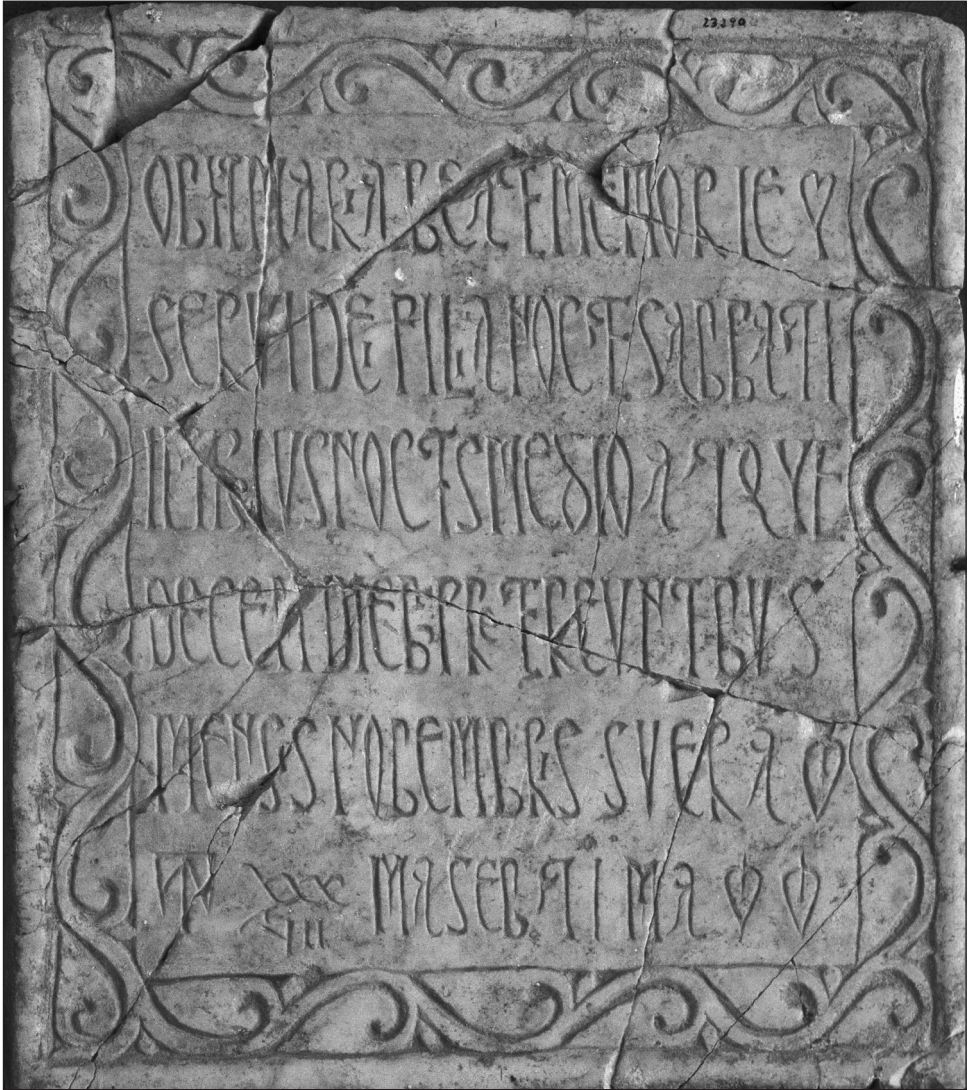 23290
OBIIT MARIA BEATE MEMORIE
SERVI DEI FILIA NOCTE SABBATI
NOCTIS MEDIO ATQVE
DECEM DIEB PRETEREVNTIBVS
MENSIS NOBEMBRIS SVERA
AN XXX MA SEBTIMA